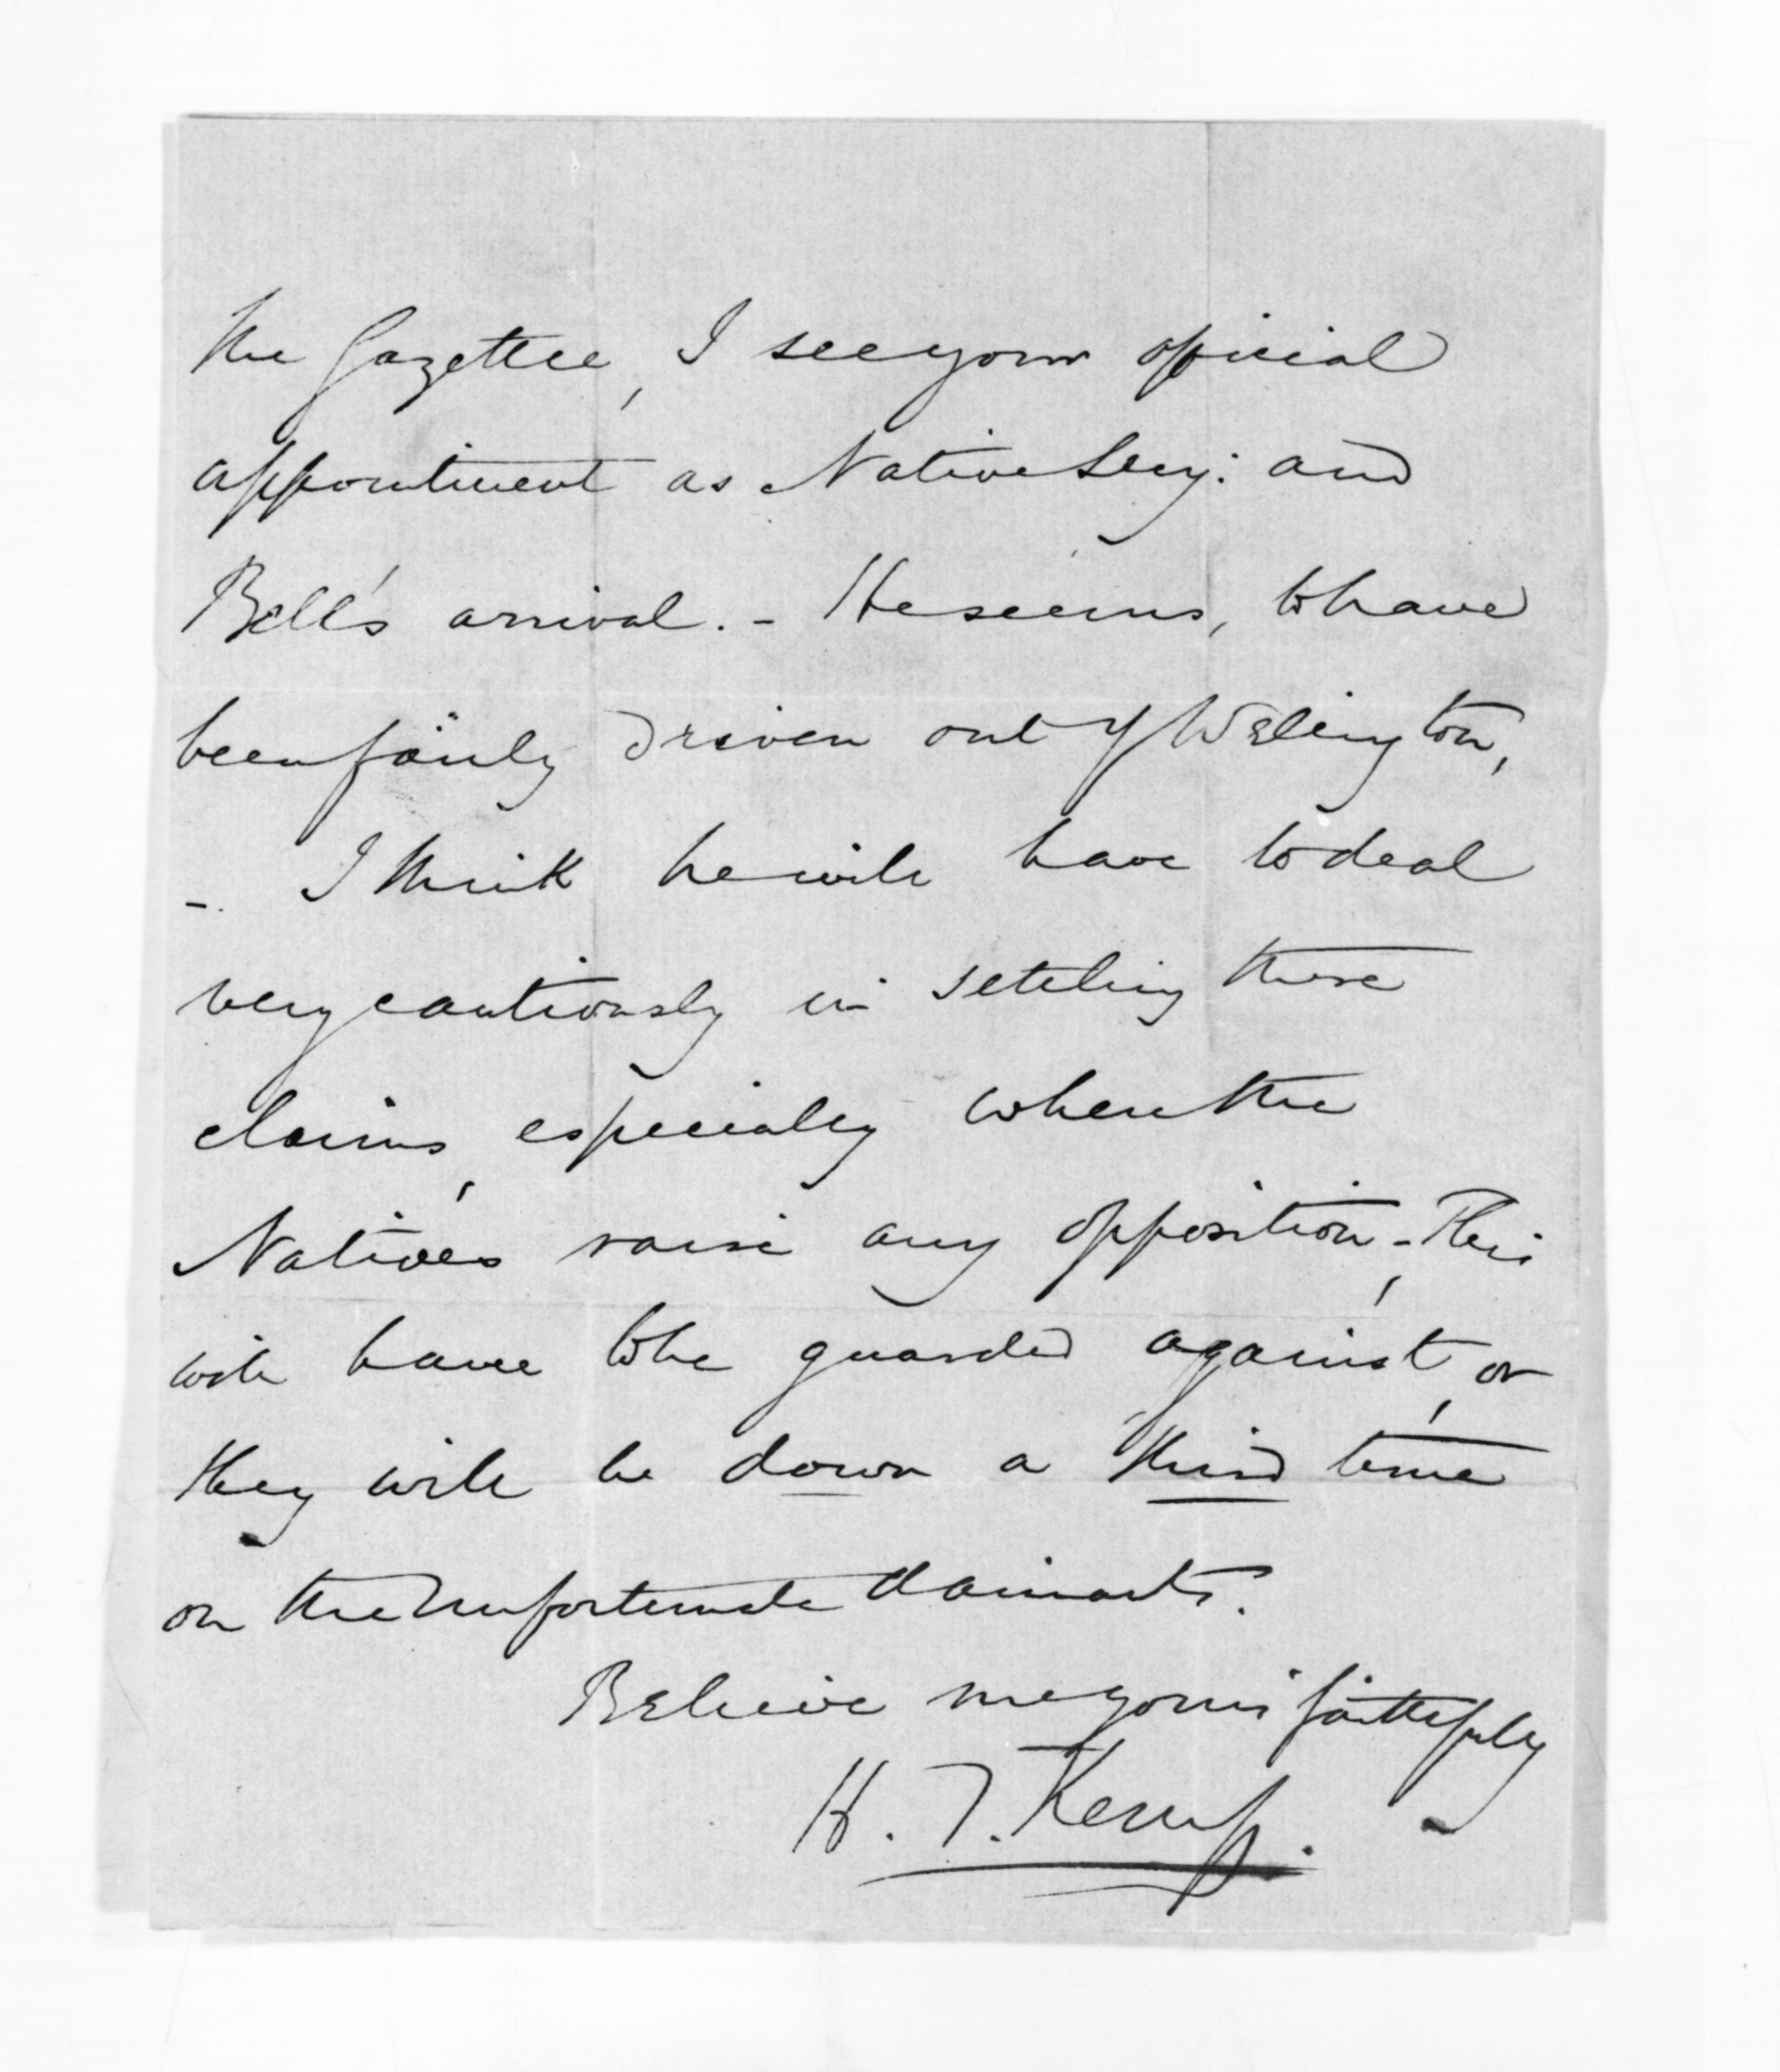 the Gazettee, I see your official
appointment as Native Secy: and
Bell's arrival. - He seems, to have
been fairly driven out of Wellington,
- I think he will have to deal
very cautiously in settling these
claims, especially where the
Natives raise any opposition, - This
will have to be guarded against, or
they will be down a third time
on the unfortunate claimants.
Believe me yours faithfully
H. T. Kemp.